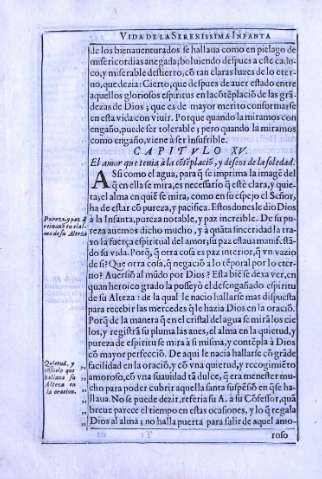 VIDA DE LA SERENISSIMA INFANTA
de los bienauenturados se hallaua como en pielago de
misericordias anegada; boluiendo despues a este caliço,
y miserable destierro, cõ tan claras luzes de lo eterno,
que dezia: Cierto, que despues de auer estado entre
aquellos gloriosos espiritus en la cõtẽplaciõ de las grãdezas
de Dios; que es de mayor merito conformarse
en esta vida con viuir. Porque quando la miramos con
engaño, puede ser tolerable; pero quando la miramos
como engaño, viene à ser insufrible.
CAPITVLO XV.
El amor que tenia à la cõtẽplaciõ, y deseos de la soledad.
ASSi como el agua, para q̃ se imprima la imagẽ del
q̃ en ella se mira, es necessario q̃ estè clara, y quieta,
el alma en quiẽ se mira, como en su espejo el Señor,
ha de estar cõ pureza, y pacifica. Estos dones le dio Dios
à la Infanta, pureza notable, y paz increible. De su pureza
auemos dicho mucho, y à quãta sinceridad la traxo
la fuerça espiritual del amor; su paz estaua manifestãdo
su vida. Porq̃, q̃ otra cosa es paz interior, q̃ vn vazio
de si? Que otra cosa, q̃ negaciõ à lo tẽporal por lo eterno?
Auersiõ al mũdo por Dios? Esta biẽ se dexa ver, en
quan heroico grado la posseyò el desengañado espiritu
de su Alteza: de la qual le nacio hallarse mas dispuesta
para recebir las mercedes q̃ le hazia Dios en la oraciõ.
Porq̃ de la manera q̃ en el cristal del agua se mirã los cielos,
y registrã su pluma las aues, el alma en la quietud, y
pureza de espiritu se mira à si misma, y contẽpla à Dios
cõ mayor perfecciõ. De aqui le nacia hallarse cõ grãde
facilidad en la oraciõ, y cõ vna quietud, y recogimiẽto
amoroso, cõ vna suauidad tã dulce, q̃ era menester mucho
para poder cubrir aquella santa suspẽsiõ en q̃ se hallaua.
No se puede dezir, referia su A. à su Cõfessor, quã
breue parece el tiempo en estas ocasiones, y lo q̃ regala
Dios al alma; no halla puerta para salir de aquel amoroso
Pureza, y paz
Alteza
Quietud, y
hallaua su
Alteza en
la oracion.